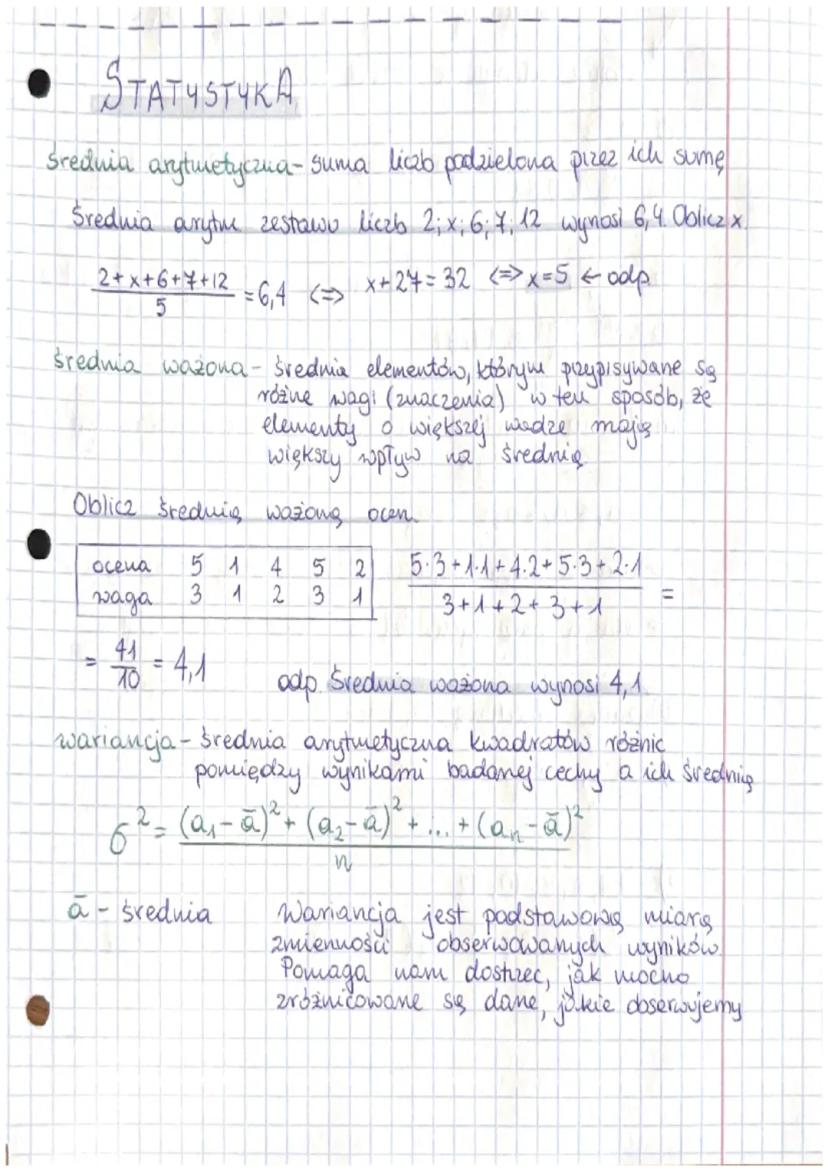 STATYSTYKA
średnia arytmetyczna - suma liczb podzielona przez ich sumę
Średnia arytm zestawu liczb 2; x; 6; 7; 12 wynosi 6,4. Oblicz x.
(2+x+6+7+12)/5 = 6,4 <=> x+27=32 <=> x=5 ← odp
średnia ważona - średnia elementów, którym przypisywane są
różne wagi (znaczenia) w ten sposób, że
elementy o większej wadze mają
większy wpływ na średnią
Oblicz średnią ważoną ocen.
ocena 5 1 4 5 2
waga 3 1 2 3 1
(5·3+1·1+4·2+5·3+2·1)/(3+1+2+3+1) =
= 41/10 = 4,1
odp. Średnia ważona wynosi 4,1.
wariancja - średnia arytmetyczna kwadratów różnic
pomiędzy wynikami badanej cechy a ich średnią
σ² = ((a₁-ā)² + (a₂-ā)² + ... + (aₙ-ā)²)/n
ā - średnia
Wariancja jest podstawową miarą
zmienności obserwowanych wyników.
Pomaga nam dostrzec, jak mocno
zróżnicowane są dane, jakie obserwujemy